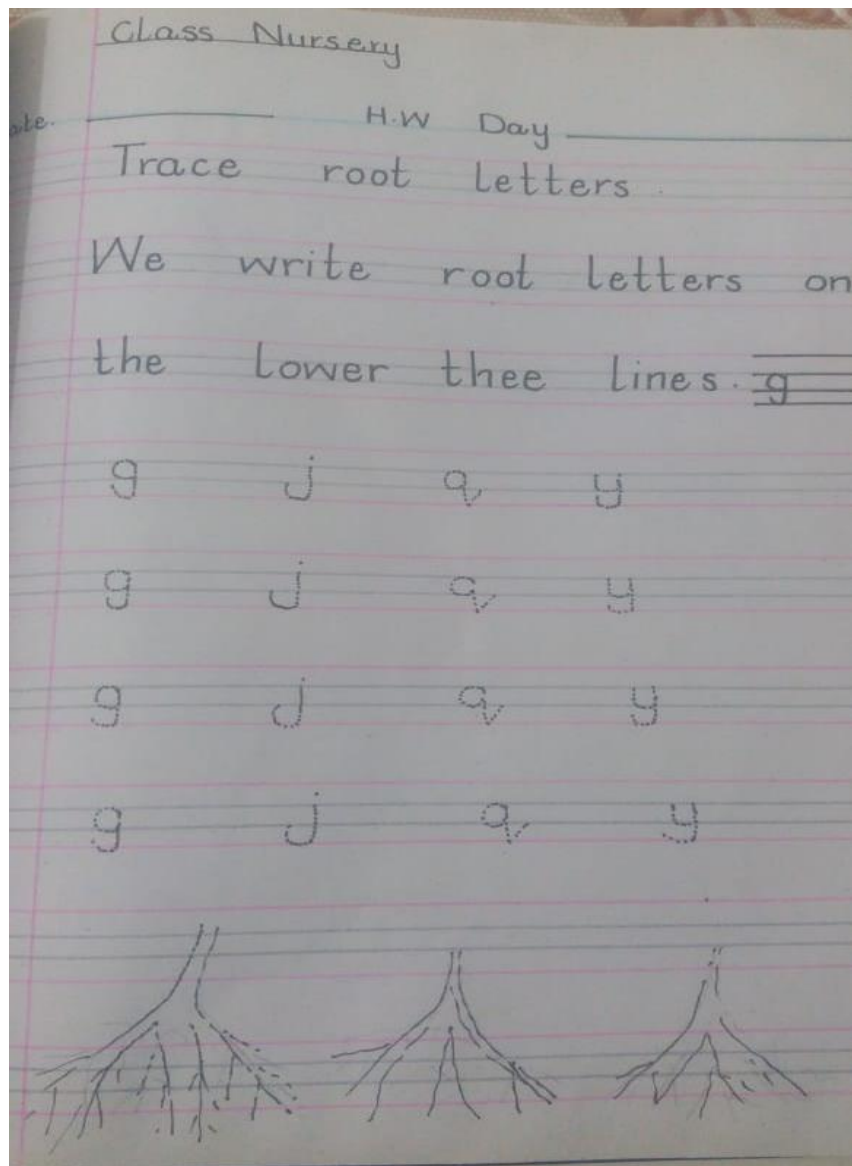 Class Nursery
ate. H.W Day
Trace root letters.
We write root letters on
the lower thee lines. g
g j q y
g j q y
g j q y
g j q y